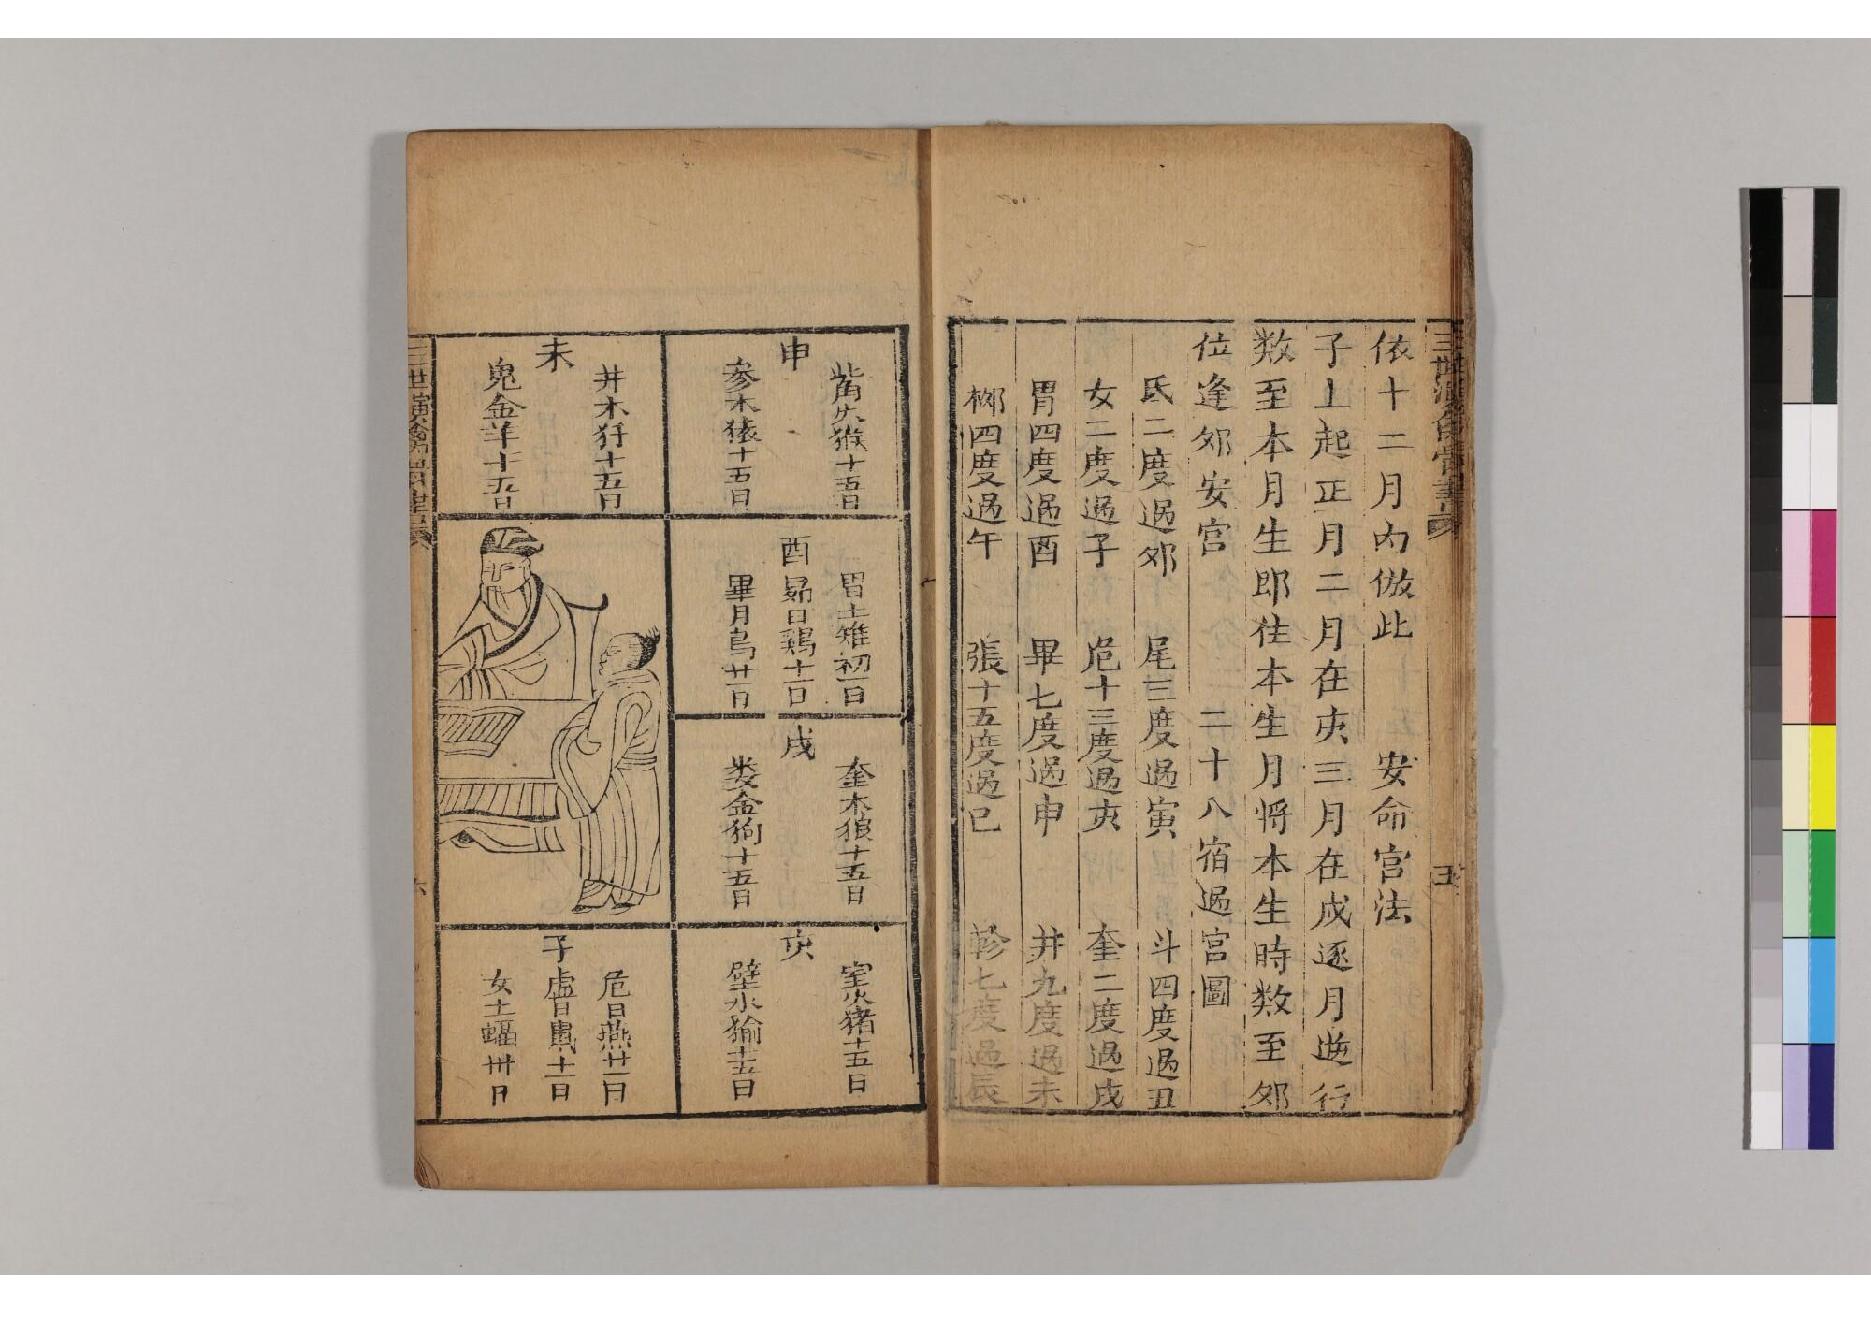 依十二月内倣此　安命宮法
子上起正月二月在亥三月在戌逐月逆行
数至本月生即住本生月将本生時数至卯
位逢卯安宮　二十八宿過宮圖
氐二度過卯　尾三度過寅　斗四度過丑
女二度過子　危十三度過亥　奎二度過戌
胃四度過酉　畢七度過申　井九度過未
柳四度過午　張十五度過巳　軫七度過辰
五
申
觜火猴十五日
参水猿十五日
未
井木犴十五日
鬼金羊十五日
酉
胃土雉初一日
昴日鶏十一日
畢月烏廿一日
戌
奎木狼十五日
娄金狗十五日
亥
室火猪十五日
壁水㺄十五日
子
危日燕廿一日
虚日鼠十一日
女土蝠卅日
六